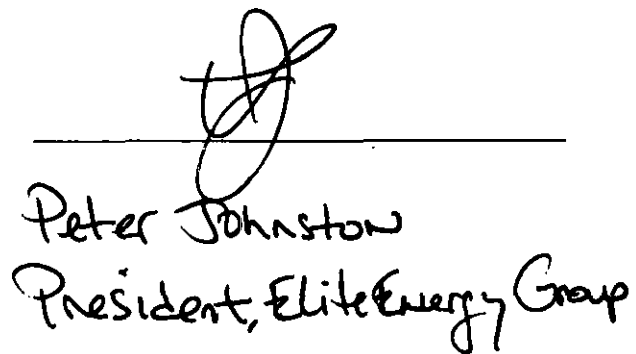 Peter Johnston
President, Elite Energy Group